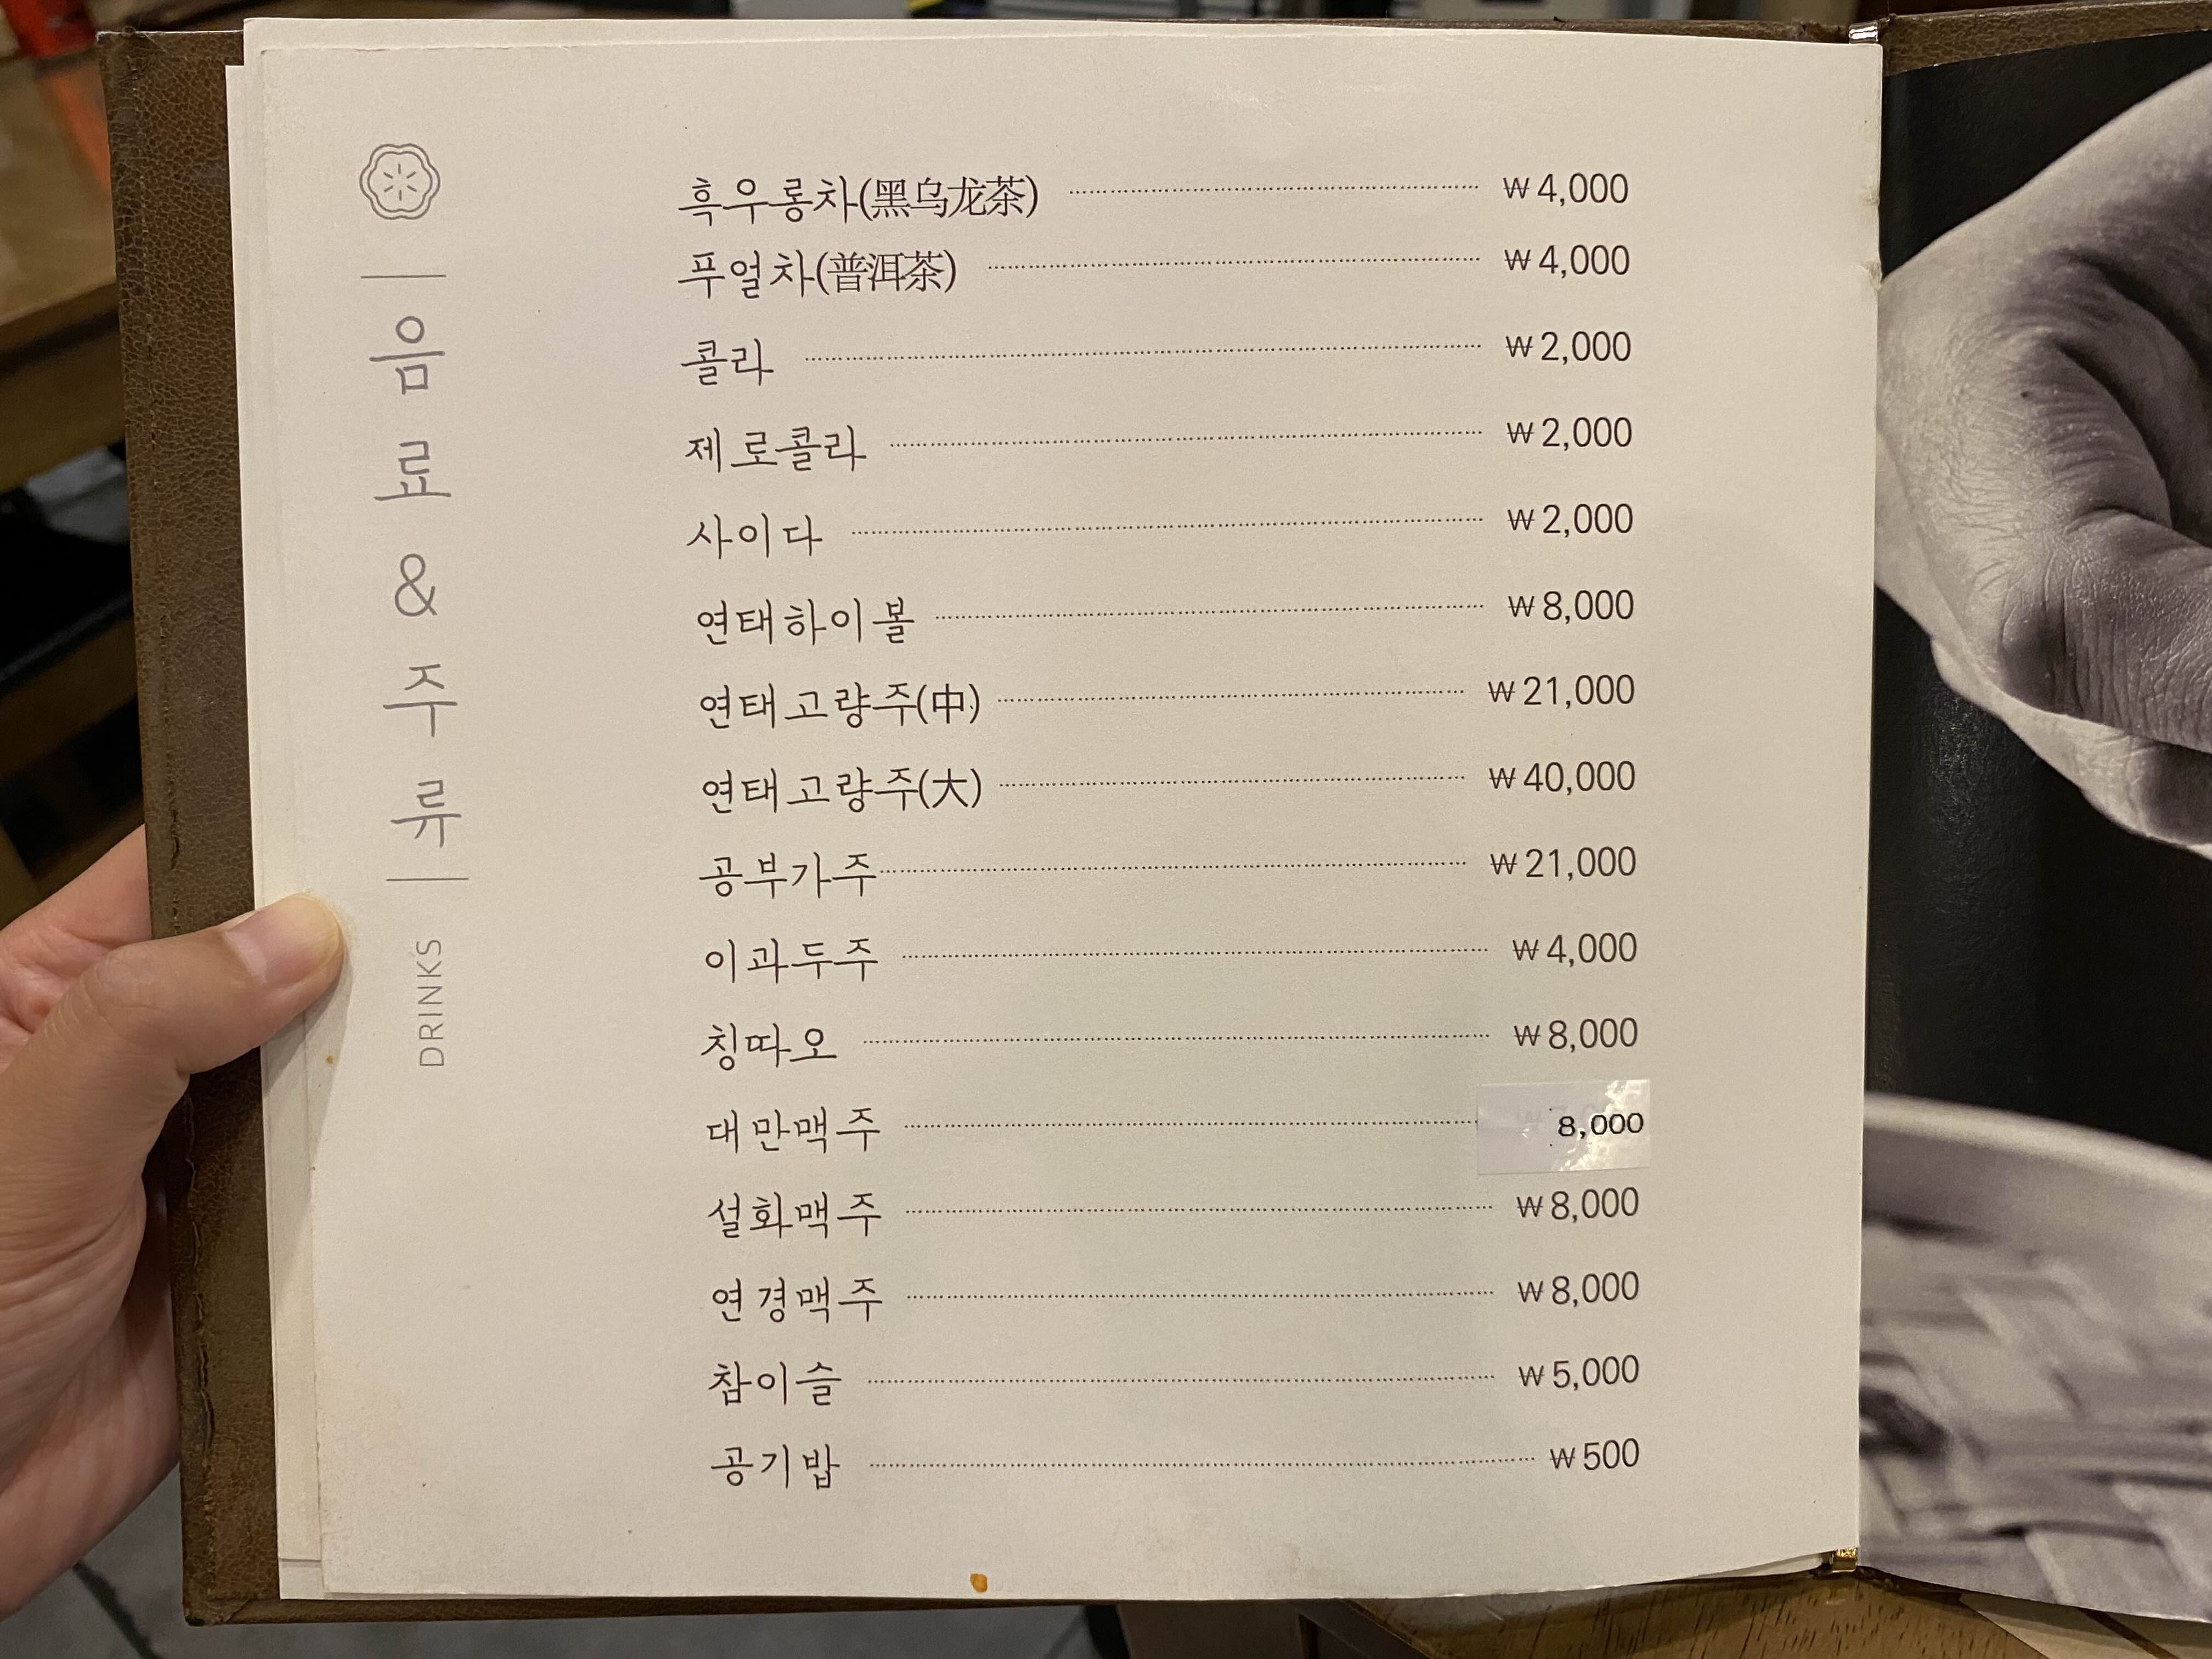 음료 & 주류
DRINKS
흑우롱차(黑乌龙茶) ₩4,000
푸얼차(普洱茶) ₩4,000
콜라 ₩2,000
제로콜라 ₩2,000
사이다 ₩2,000
연태하이볼 ₩8,000
연태고량주(中) ₩21,000
연태고량주(大) ₩40,000
공부가주 ₩21,000
이과두주 ₩4,000
칭따오 ₩8,000
대만맥주 8,000
설화맥주 ₩8,000
연경맥주 ₩8,000
참이슬 ₩5,000
공기밥 ₩500